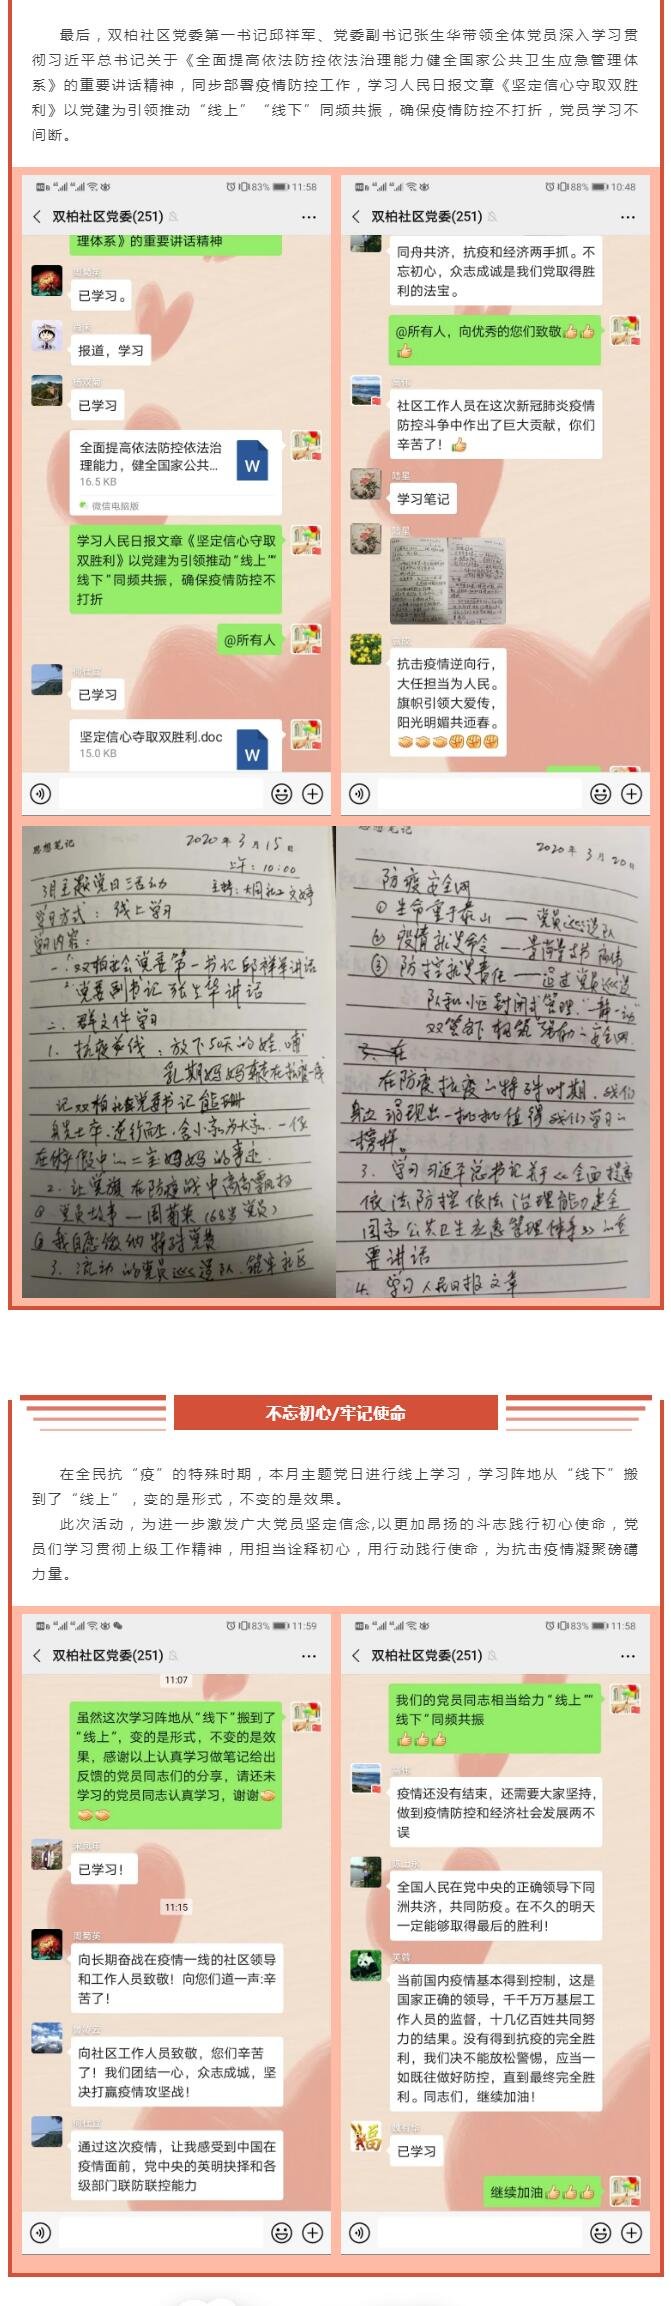 最后，双柏社区党委第一书记邱祥军、党委副书记张生华带领全体党员深入学习贯
彻习近平总书记关于《全面提高依法防控依法治理能力健全国家公共卫生应急管理体
系》的重要讲话精神，同步部署疫情防控工作，学习人民日报文章《坚定信心守取双胜
利》以党建为引领推动“线上”“线下”同频共振，确保疫情防控不打折，党员学习不
间断。
83% 11:58
双柏社区党委(251)
理体系》的重要讲话精神
周菊英
已学习。
报道，学习
已学习
全面提高依法防控依法治
理能力，健全国家公共...
16.5 KB
W
微信电脑版
学习人民日报文章《坚定信心守取
双胜利》以党建为引领推动“线上”“
线下”同频共振，确保疫情防控不
打折
@所有人
已学习
坚定信心夺取双胜利.doc
15.0 KB
W
88% 10:48
双柏社区党委(251)
同舟共济，抗疫和经济两手抓。不
忘初心，众志成诚是我们党取得胜
利的法宝。
@所有人，向优秀的您们致敬👍👍
👍
社区工作人员在这次新冠肺炎疫情
防控斗争中作出了巨大贡献，你们
辛苦了！👍
陆星
学习笔记
陆星
抗击疫情逆向行，
大任担当为人民。
旗帜引领大爱传，
阳光明媚共迊春。
🤝🤝🤝✊✊✊
思想笔记
2020年3月15日
上午：10:00
3月主题党日活动
学习方式：线上学习
学习内容：
一.双柏社会党委第一书记邱祥军讲话
党委副书记张生华讲话
二、群文件学习
1. 抗疫前线：放下50天的娃，哺
乳期妈妈奔走在抗疫一线
2. 让党旗在防疫战中高高飘扬
① 党员故事——周菊英（68岁党员）
② 我自愿缴纳特殊党费
3、流动的党员巡逻队、筑牢社区
思想笔记
2020年3月20日
防疫安全网
① 生命重于泰山——党员巡逻队
③ 防控就是责任——通过党员巡逻
队和小区封闭式管理，“一静一动”
在防疫抗疫的特殊时期，我们
身边涌现出一批批值得我们学习的
榜样。
3. 学习习近平总书记关于《全面提高
依法防控依法治理能力健全
国家公共卫生应急管理体系》的重
要讲话
4. 学习人民日报文章
不忘初心/牢记使命
在全民抗“疫”的特殊时期，本月主题党日进行线上学习，学习阵地从“线下”搬
到了“线上”，变的是形式，不变的是效果。
此次活动，为进一步激发广大党员坚定信念,以更加昂扬的斗志践行初心使命，党
员们学习贯彻上级工作精神，用担当诠释初心，用行动践行使命，为抗击疫情凝聚磅礴
力量。
83% 11:59
双柏社区党委(251)
11:07
虽然这次学习阵地从“线下”搬到了
“线上”，变的是形式，不变的是效
果，感谢以上认真学习做笔记给出
反馈的党员同志们的分享，请还未
学习的党员同志认真学习，谢谢🤝
🤝🤝
已学习！
11:15
周菊英
向长期奋战在疫情一线的社区领导
和工作人员致敬！向您们道一声:辛
苦了！
向社区工作人员致敬，您们辛苦
了！我们团结一心，众志成城，坚
决打赢疫情攻坚战！
通过这次疫情，让我感受到中国在
疫情面前，党中央的英明抉择和各
级部门联防联控能力
83% 11:58
双柏社区党委(251)
我们的党员同志相当给力“线上”“
线下”同频共振
👍👍👍
疫情还没有结束，还需要大家坚持，
做到疫情防控和经济社会发展两不
误
全国人民在党中央的正确领导下同
洲共济，共同防疫。在不久的明天
一定能够取得最后的胜利！
芙蓉
当前国内疫情基本得到控制，这是
国家正确的领导，千千万万基层工
作人员的监督，十几亿百姓共同努
力的结果。没有得到抗疫的完全胜
利，我们决不能放松警惕，应当一
如既往做好防控，直到最终完全胜
利。同志们，继续加油！
已学习
继续加油👍👍👍